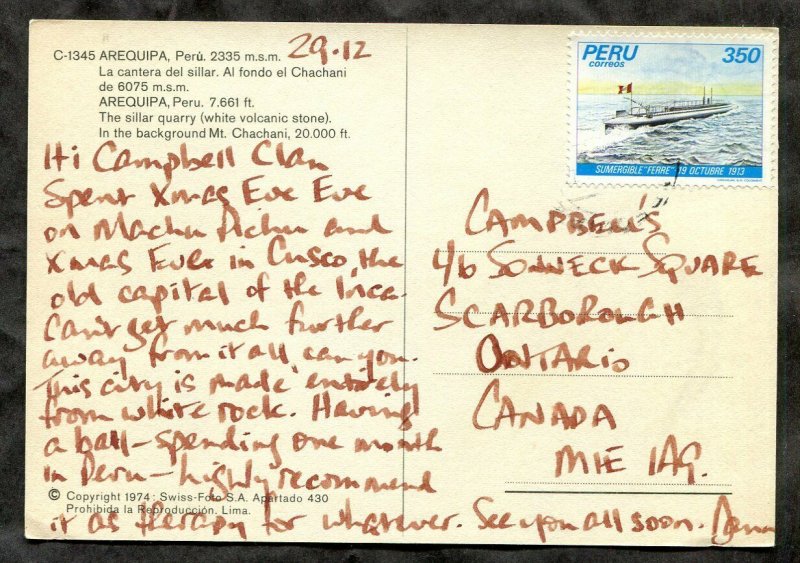 C-1345 AREQUIPA, Perú. 2335 m.s.m. 29.12
La cantera del sillar. Al fondo el Chachani
de 6075 m.s.m.
AREQUIPA, Peru. 7.661 ft.
The sillar quarry (white volcanic stone).
In the background Mt. Chachani, 20.000 ft.
Hi Campbell Clan
Spent Xmas Eve Eve
on Machu Pichu and
Xmas Eve in Cusco, the
old capital of the Inca.
Can't get much further
away from it all can you.
This city is made entirely
from white rock. Having
a ball - spending one month
in Peru - highly recommend
it as therapy for whatever. See you all soon.
© Copyright 1974: Swiss-Foto S.A. Apartado 430
Prohibida la Reproducción. Lima.
PERU 350
correos
SUMERGIBLE "FERRE" 19 OCTUBRE 1913
CAMPBELL'S
SQUARE
SCARBOROUGH
ONTARIO
CANADA